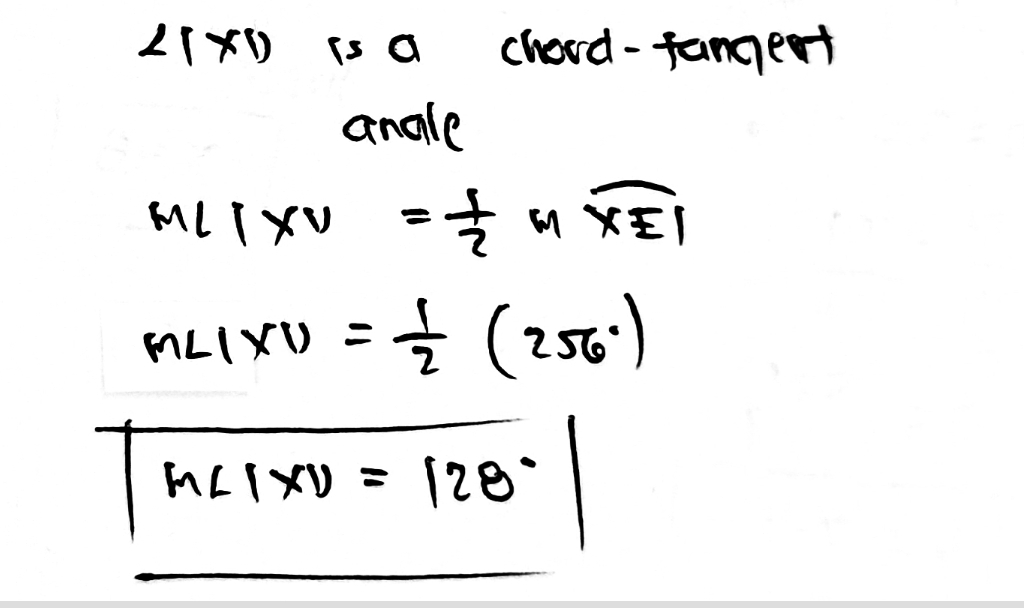 ∠IXV is a chord-tangent
angle
m∠IXV = 1/2 m XEI
m∠IXV = 1/2 (256°)
m∠IXV = 128°